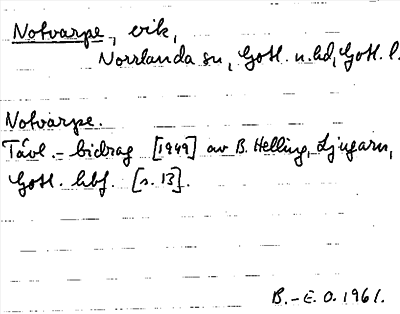 Notvarpe, vik,
Norrlanda sn, Gotl. n. hd, Gotl. l.
Notvarpe.
Tävl.-bidrag [1949] av B. Helling, Ljugarn,
Gotl. hbf. [s. 13].
B.-E. O. 1961.